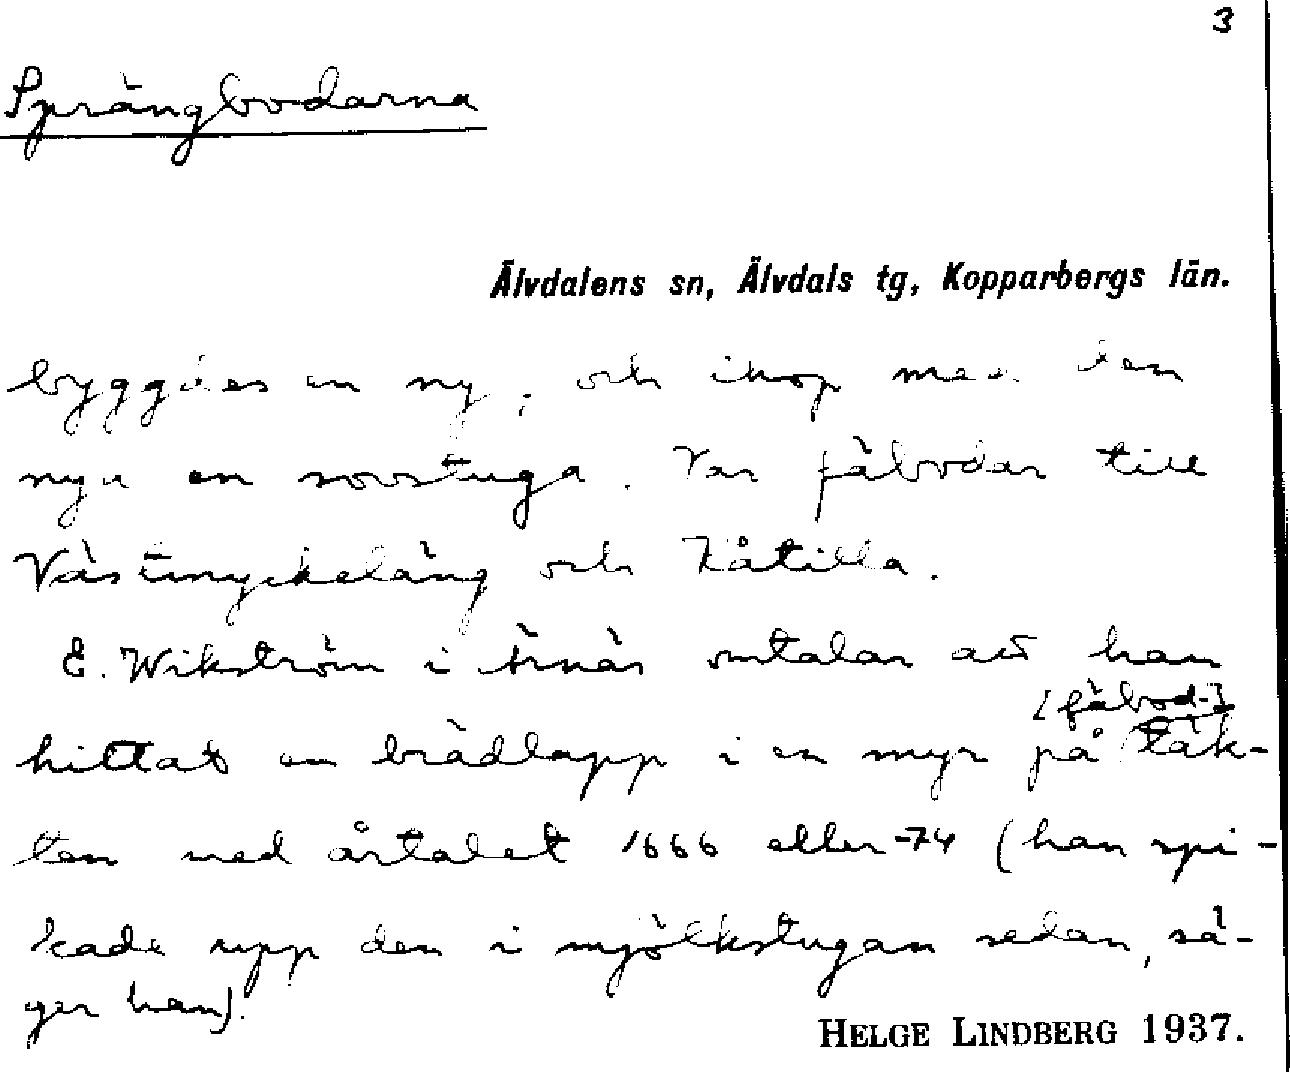 3
Sprängbodarna
Älvdalens sn, Älvdals tg, Kopparbergs län.
byggdes en ny, och ihop med den
nya en sovstuga. Var fäbodar till
Västmyckeläng och Kåtilla.
E. Wikström i Ärnäs omtalar att han
[fäbod-]
hittat en brädlapp i en myr på täk-
ten med årtalet 1666 eller -74 (han spi-
kade upp den i mjölkstugan sedan, sä-
ger han).
HELGE LINDBERG 1937.